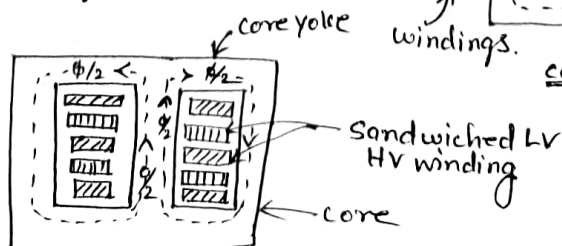 core yoke
windings.
φ/2
φ/2
φ/2
φ/2
Sandwiched LV
HV winding
core